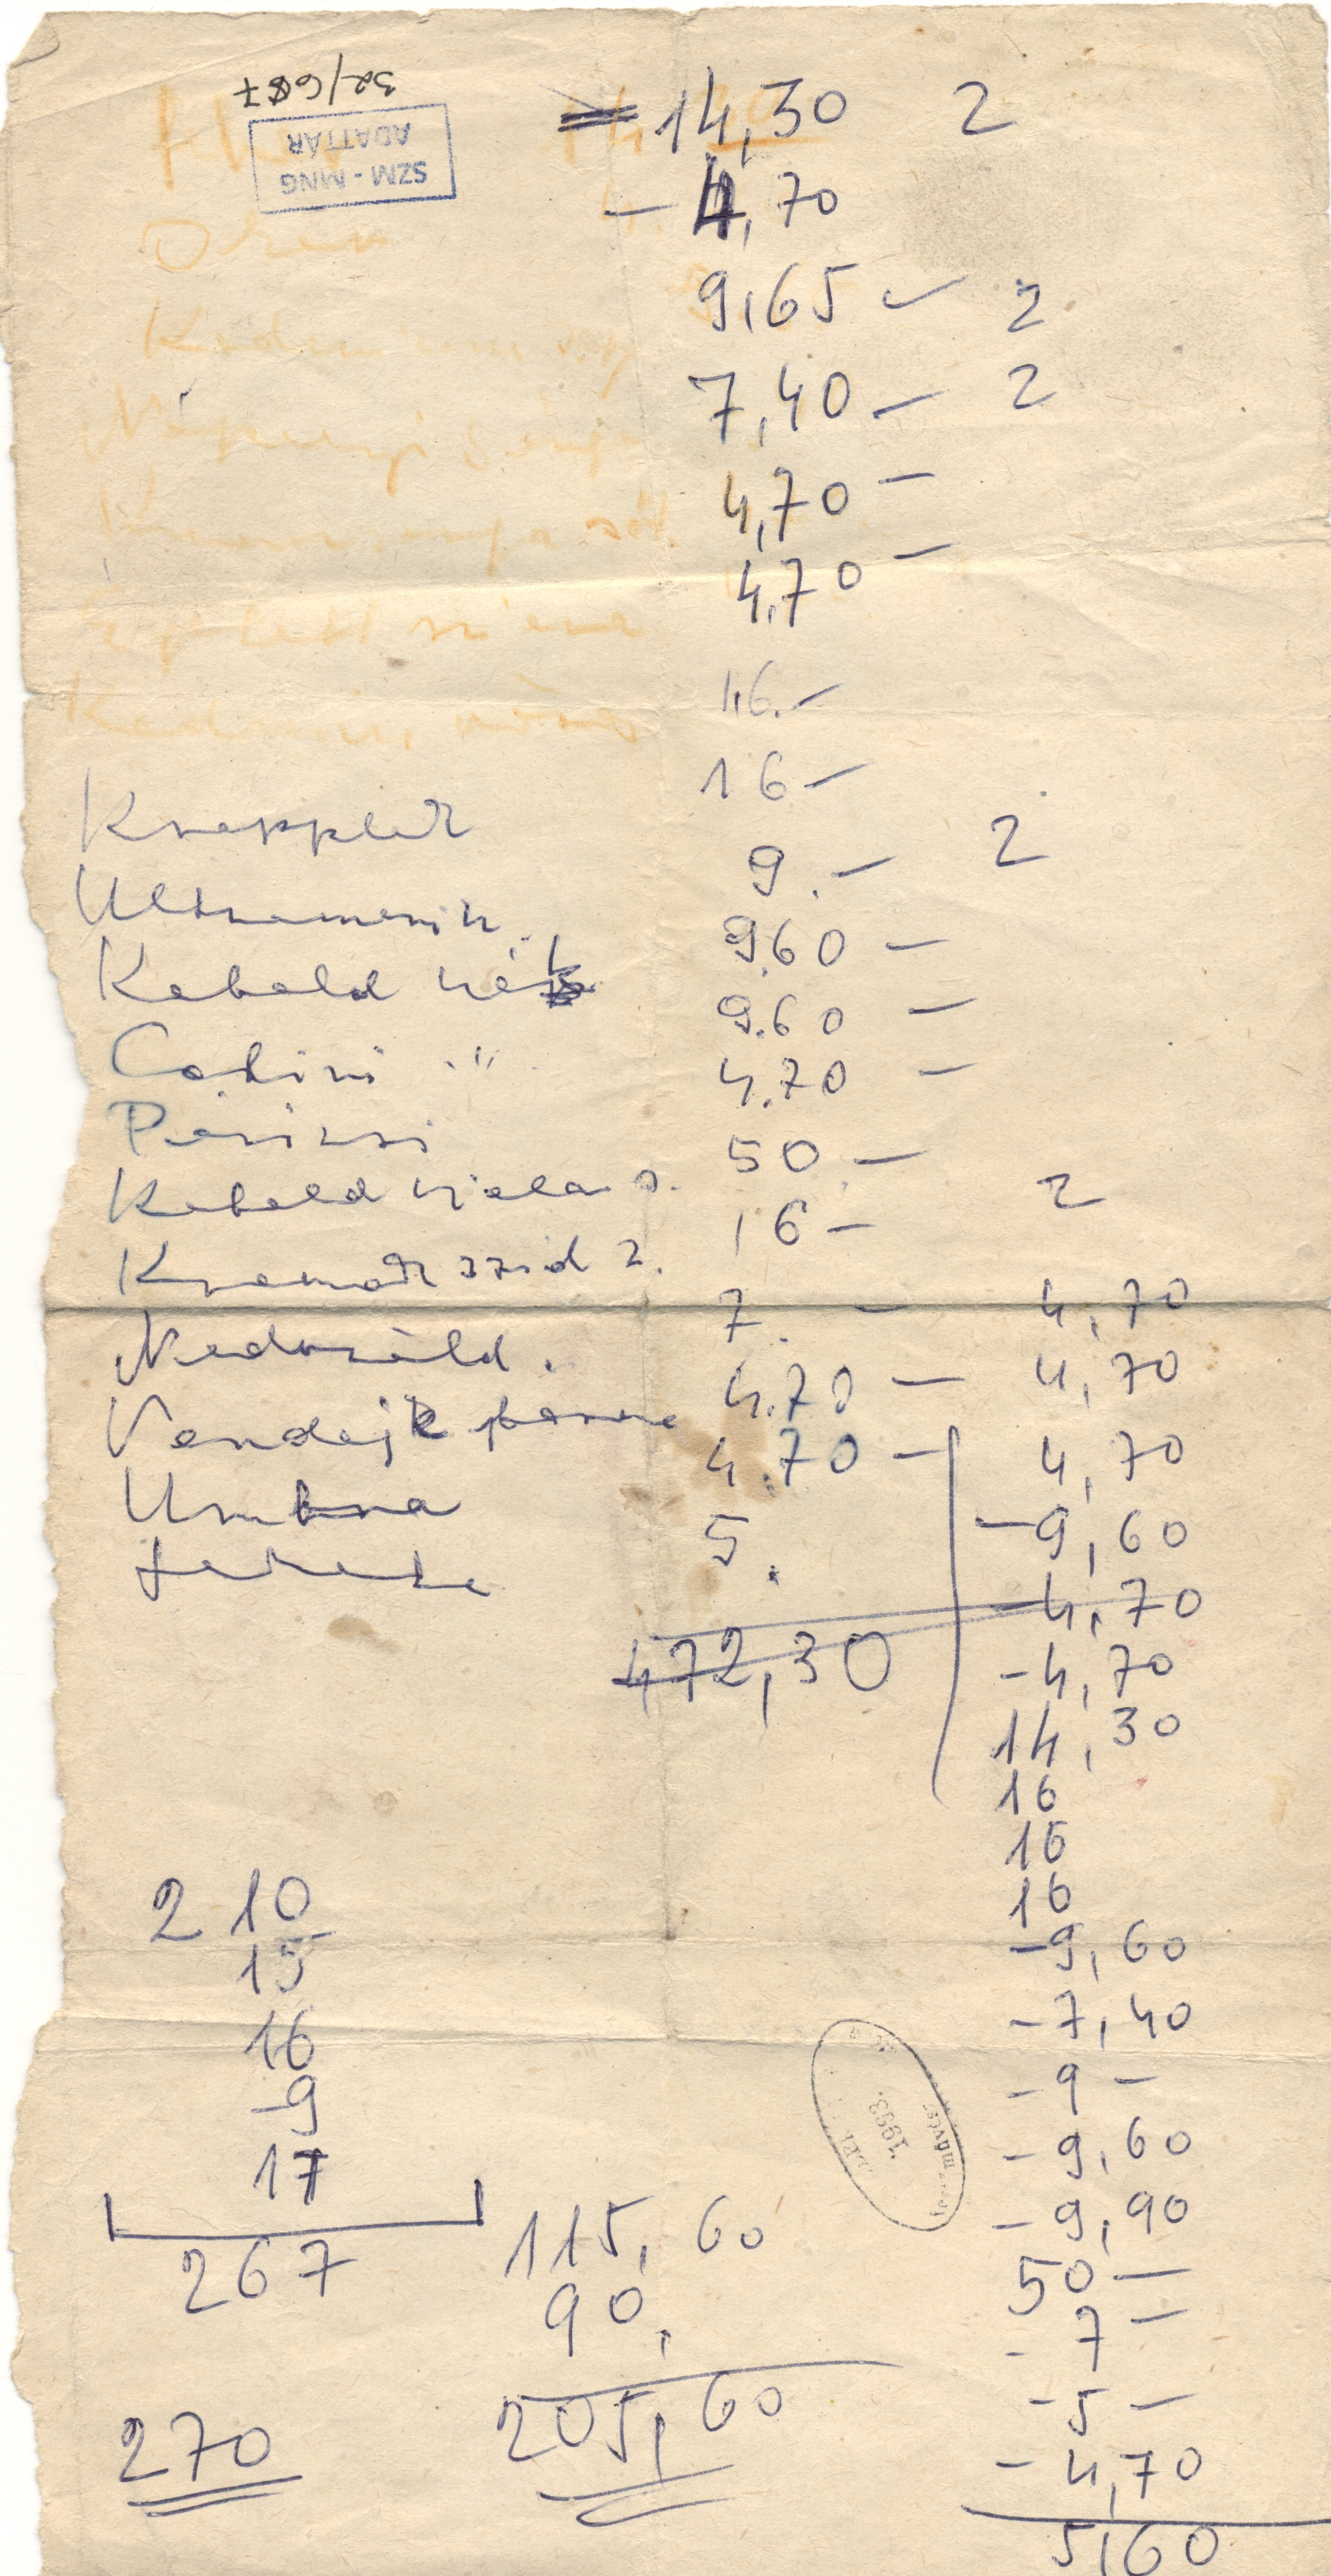 32/687
SZM - MNG
ADATTÁR
14,30 2
- 4,70
9,65 - 2
7,40 - 2
4,70 -
4,70 -
16.-
16 -
Krapplak
9.- 2
Ultramarin
9.60 -
Kobald kék
9.60 -
Cölini "
4.70 -
Párizsi
50 -
Kobald viola s. 2
16 -
Kremar zöld 2.
7. - 4,70
4.70 - 4,70
Vandejk barna
4.70 - 4,70
Umbra
5. -9,60
fekete
-4,70
472,30
-4,70
14,30
16
16
16
2 10
-9,60
15
-7,40
16
-9 -
-9
1993.
művész
-9,60
17
-9,90
267 115,60
50 -
90,
-7 -
205,60
-5 -
270
-4,70
5,60